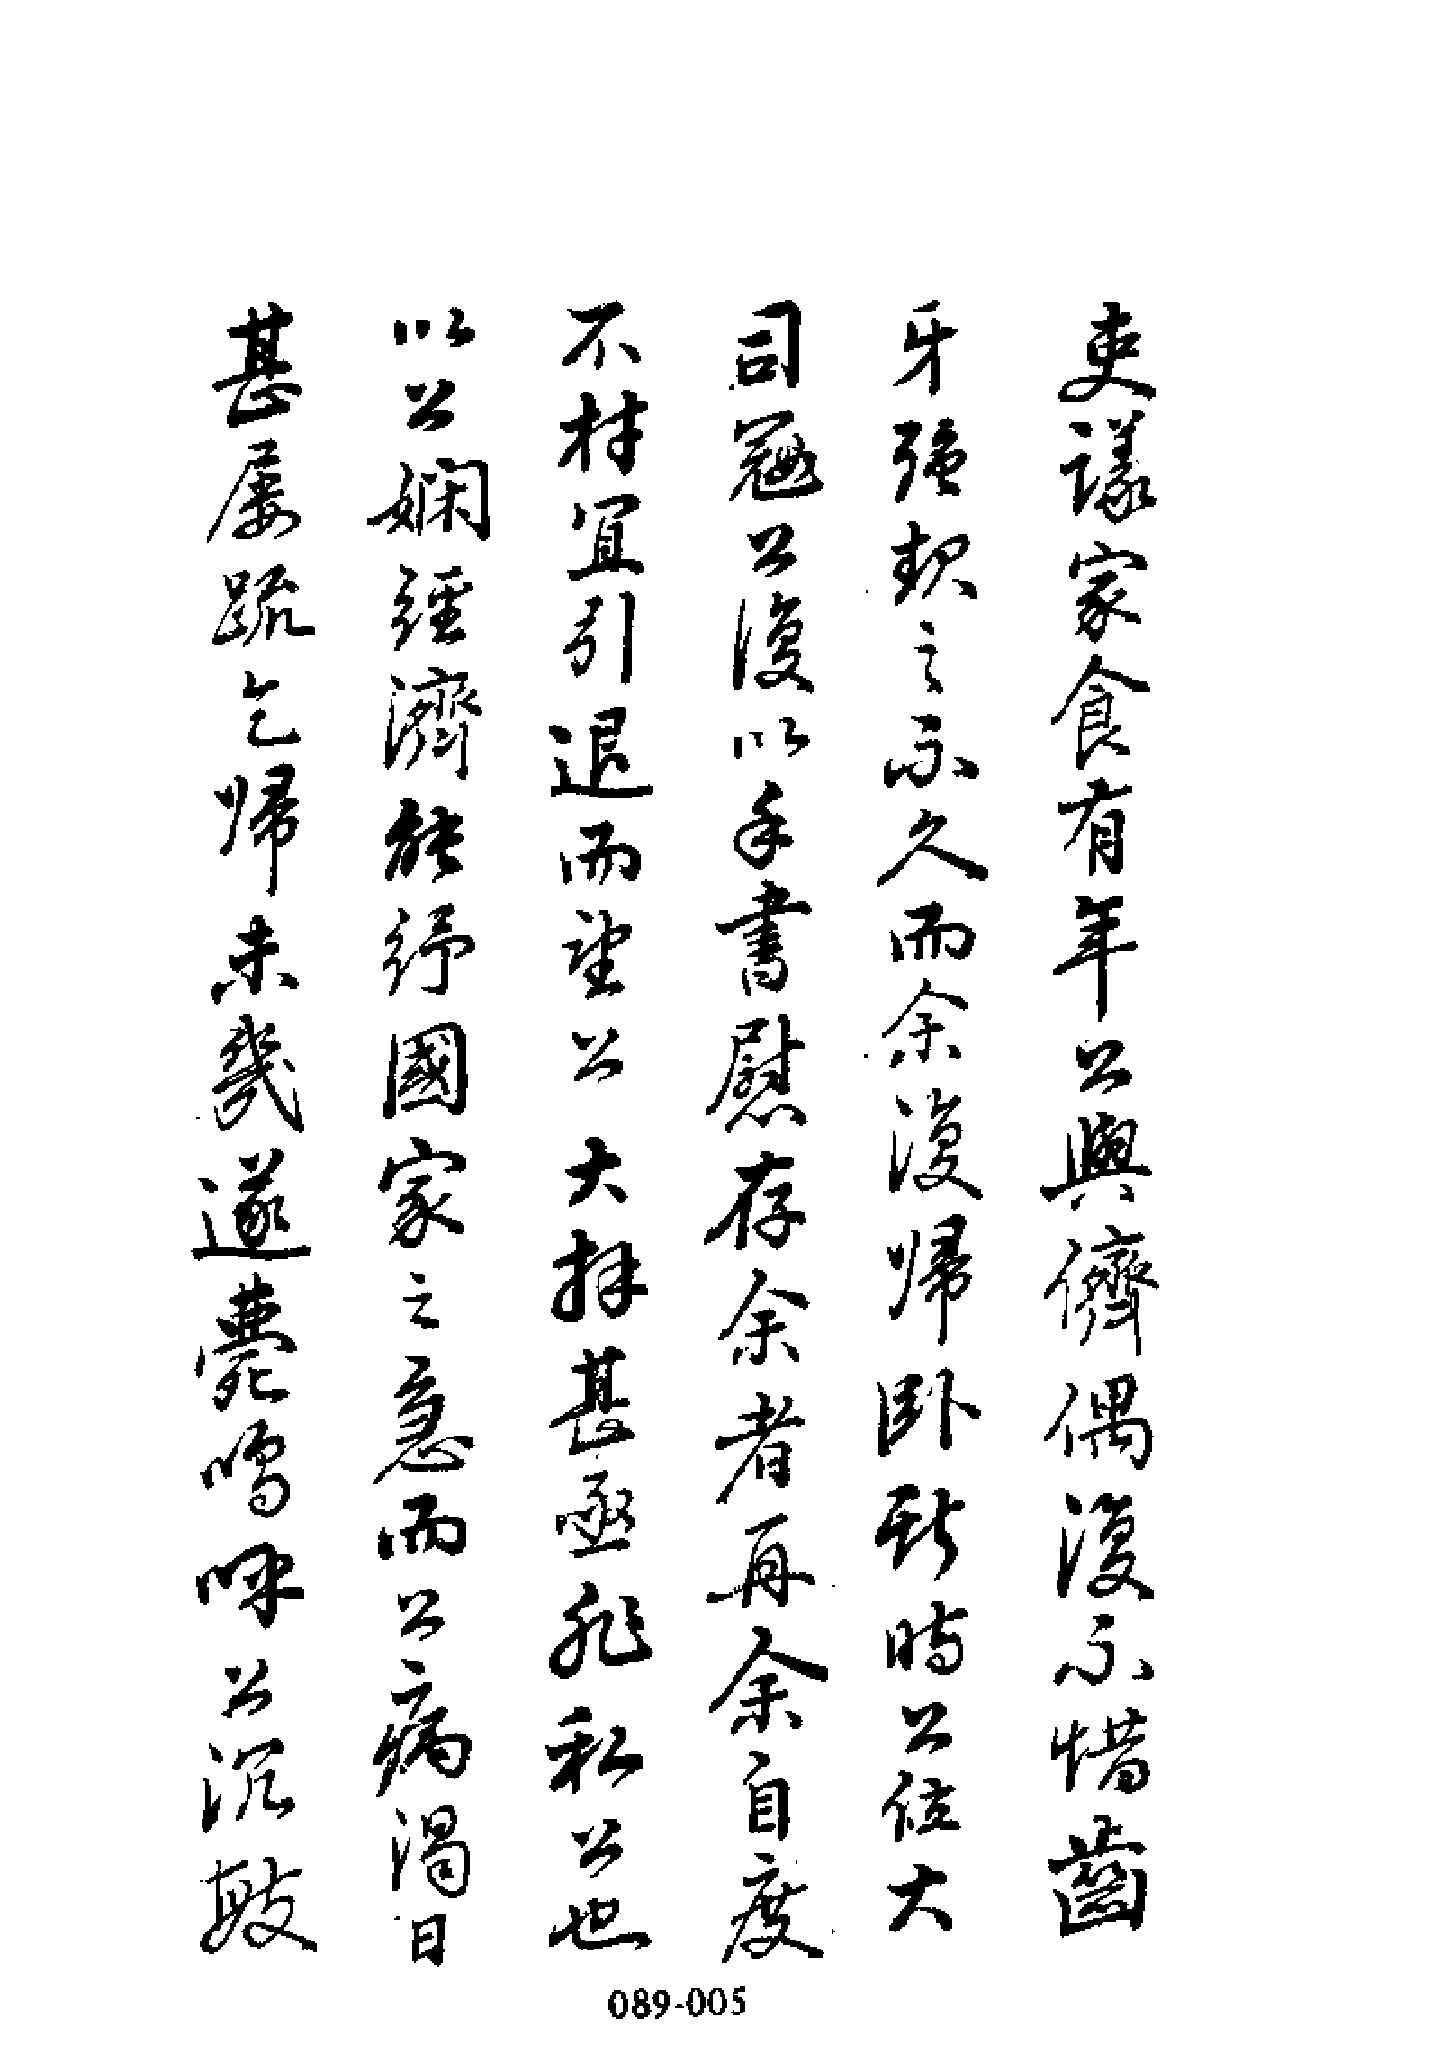 吏議家食有年公與儕偶復不惜齒
牙強契之不久而余復歸臥斯時公位大
司寇公復以手書慰存余者再余自度
不材宜引退而望公大拜甚亟非私公也
以公嫻經濟能紓國家之急而公病渴日
甚屢疏乞歸未幾遂薨嗚呼公沉毅
089-005